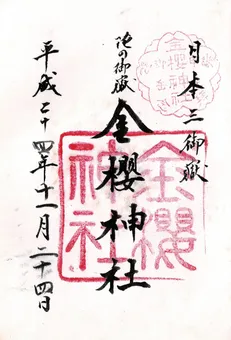 日本三御嶽
滝の御嶽
金櫻神社
平成二十四年十一月二十四日
金櫻神社